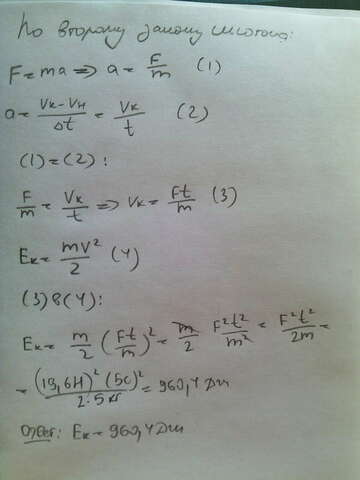 По второму закону Ньютона:
F = ma => a = F/m (1)
a = (Vк - Vн)/Δt = Vк/t (2)
(1) = (2):
F/m = Vк/t => Vк = Ft/m (3)
Eк = mV²/2 (4)
(3) в (4):
Eк = m/2 (Ft/m)² = m/2 F²t²/m² = F²t²/2m =
= (19,6Н)² (5с)²/2·5кг = 960,4 Дж
Ответ: Eк = 960,4 Дж